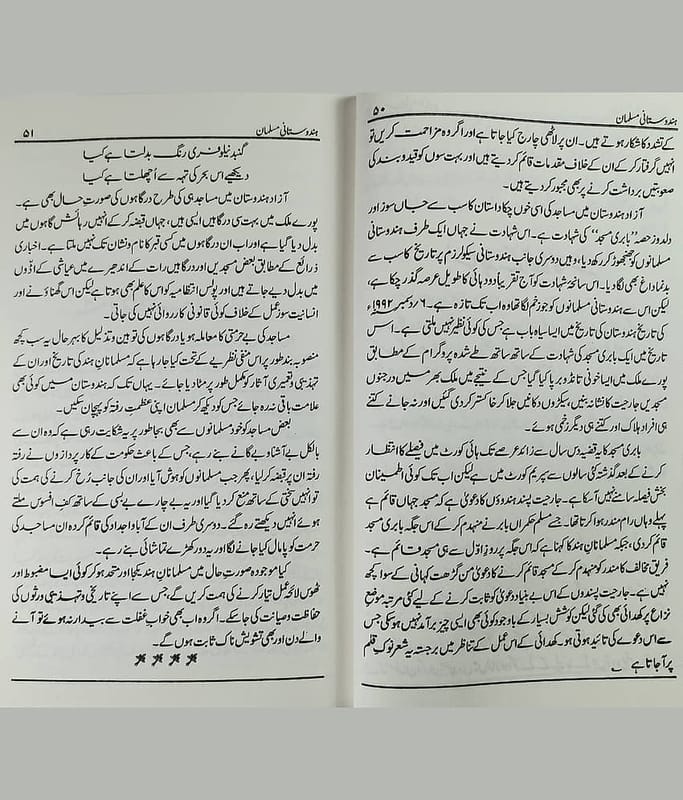 ۵۰
ہندوستانی مسلمان
کے تشدد کا شکار ہوتے ہیں۔ ان پر لاٹھی چارج کیا جاتا ہے اور اگر وہ مزاحمت کریں تو
انہیں گرفتار کر کے ان کے خلاف مقدمات قائم کر دیتے ہیں اور بہت سوں کو قید و بند کی
صعوبتیں برداشت کرنے پر بھی مجبور کر دیتے ہیں۔
آزاد ہندوستان میں مساجد کی اسی خوں چکا داستان کا سب سے جاں سوز اور
دلدوز حصہ ”بابری مسجد“ کی شہادت ہے۔ اس شہادت نے جہاں ایک طرف ہندوستانی
مسلمانوں کو جھنجھوڑ کر رکھ دیا، وہیں دوسری جانب ہندوستانی سیکولرزم پر تاریخ کا سب سے
بدنما داغ بھی لگا دیا۔ اس سانحۂ شہادت کو آج تقریباً دو دہائی کا طویل عرصہ گذر چکا ہے،
لیکن اس سے ہندوستانی مسلمانوں کو جو زخم لگا تھا وہ اب تک تازہ ہے۔ ۶؍دسمبر ۱۹۹۲ء
کی تاریخ ہندوستان کی تاریخ میں ایسا سیاہ باب ہے جس کی کوئی نظیر نہیں ملتی ہے۔ اس
تاریخ میں ایک بابری مسجد کی شہادت کے ساتھ ساتھ طے شدہ پروگرام کے مطابق
پورے ملک میں ایسا خونی تانڈو برپا کیا گیا جس کے نتیجے میں ملک بھر میں درجنوں
مسجدیں جارحیت کا نشانہ بنیں، سیکڑوں دکانیں جلا کر خاکستر کر دی گئیں اور نہ جانے کتنے
ہی افراد ہلاک اور کتنے ہی دیگر زخمی ہوئے۔
بابری مسجد کا یہ قضیہ دس سال سے زائد عرصہ تک ہائی کورٹ میں فیصلے کا انتظار
کرنے کے بعد گذشتہ کئی سالوں سے سپریم کورٹ میں ہے لیکن اب تک کوئی اطمینان
بخش فیصلہ سامنے نہیں آسکا ہے۔ جارحیت پسند ہندوؤں کا دعویٰ ہے کہ مسجد جہاں قائم ہے
پہلے وہاں رام مندر ہوا کرتا تھا۔ جسے مسلم حکمراں بابر نے منہدم کر کے اس جگہ بابری مسجد
قائم کر دی، جبکہ مسلمانانِ ہند کا کہنا ہے کہ اس جگہ پر روزِ اوّل سے ہی مسجد قائم ہے۔
فریق مخالف کا مندر کو منہدم کر کے مسجد قائم کرنے کا دعویٰ من گڑھت کہانی کے سوا کچھ
نہیں ہے۔ جارحیت پسندوں کے اس بے بنیاد دعویٰ کو ثابت کرنے کے لیے کئی مرتبہ موضع
نزاع پر کھدائی بھی کی گئی لیکن کوشش بسیار کے باوجود کوئی بھی ایسی چیز برآمد نہیں ہوسکی جس
سے اس دعوے کی تائید ہوتی ہو۔ کھدائی کے اس عمل کے تناظر میں برجستہ یہ شعر نوکِ قلم
پر آجاتا ہے ؎
ہندوستانی مسلمان
۵۱
گنبد نیلوفری رنگ بدلتا ہے کیا
دیکھیے اس بحر کی تہہ سے اُچھلتا ہے کیا
آزاد ہندوستان میں مساجد ہی کی طرح درگاہوں کی صورتِ حال بھی ہے۔
پورے ملک میں بہت سی درگاہیں ایسی ہیں، جہاں قبضہ کر کے انہیں رہائش گاہوں میں
بدل دیا گیا ہے اور اب ان درگاہوں میں کسی قبر کا نام و نشان تک نہیں ملتا ہے۔ اخباری
ذرائع کے مطابق بعض مسجدیں اور درگاہیں رات کے اندھیرے میں عیاشی کے اڈوں
میں بدل دیے جاتے ہیں اور پولیس انتظامیہ کو اس کا علم بھی ہوتا ہے لیکن اس گھناؤنے اور
انسانیت سوز عمل کے خلاف کوئی قانونی کارروائی نہیں کی جاتی۔
مساجد کی بے حرمتی کا معاملہ ہو یا درگاہوں کی توہین و تذلیل کا بہر حال یہ سب کچھ
منصوبہ بند طور پر اس منفی نظریے کے تحت کیا جا رہا ہے کہ مسلمانانِ ہند کی تاریخ اور ان کے
تہذیبی و تعمیری آثار کو مکمل طور پر مٹا دیا جائے۔ یہاں تک کہ ہندوستان میں کوئی بھی
علامت باقی نہ رہ جائے جس کو دیکھ کر مسلمان اپنی عظمتِ رفتہ کو پہچان سکیں۔
بعض مساجد کو خود مسلمانوں سے بھی بجا طور پر یہ شکایت رہی ہے کہ وہ ان سے
بالکل بے آشنا و بے گانے بنے رہے، جس کے باعث حکومت کے کارپردازوں نے رفتہ
رفتہ ان پر قبضہ کر لیا، پھر جب مسلمانوں کو ہوش آیا اور ان کی جانب رُخ کرنے کی ہمت کی
تو انہیں سختی کے ساتھ منع کر دیا گیا اور یہ بے چارے بے بسی کے ساتھ کفِ افسوس ملتے
ہوئے انہیں دیکھتے رہ گئے۔ دوسری طرف ان کے آبا و اجداد کی قائم کردہ ان مساجد کی
حرمت کو پامال کیا جانے لگا اور یہ دور کھڑے تماشائی بنے رہے۔
کیا موجودہ صورتِ حال میں مسلمانانِ ہند یکجا اور متحد ہو کر کوئی ایسا مضبوط اور
ٹھوس لائحۂ عمل تیار کرنے کی ہمت کریں گے، جس سے اپنے تاریخی و تہذیبی ورثوں کی
حفاظت و صیانت کی جاسکے۔ اگر وہ اب بھی خوابِ غفلت سے بیدار نہ ہوئے تو آنے
والے دن اور بھی تشویش ناک ثابت ہوں گے۔
****